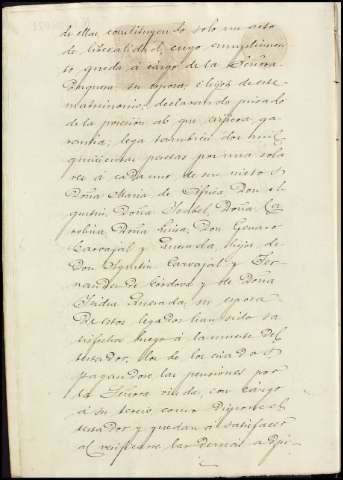 de ellas constituyendo solo un acto
de liberalidad, cuyo cumplimien
to queda á cargo de la Señora
su esposa, e hijos de este
matrimonio, declarando
de la porcion de que
lega tambien dos mil
quinientas pesetas por una sola
vez á cada uno de sus nietos
Doña Maria de Africa, Don
gustin, Doña Isabel, Doña Ca
rolina, Doña Luisa, Don Genaro
Carvajal y Quesada, hijos de
Don Agustin Carvajal y Fer
nandez de Córdova y de Doña
Isidra Quesada, su esposa
De estos legados han sido sa
tisfechos luego á la muerte del
testador, los de los criados
pagandose las pensiones por
la Señora viuda, con cargo
á su tercio como dispone el
testador y quedan á satisfacer
al verificarse las demás